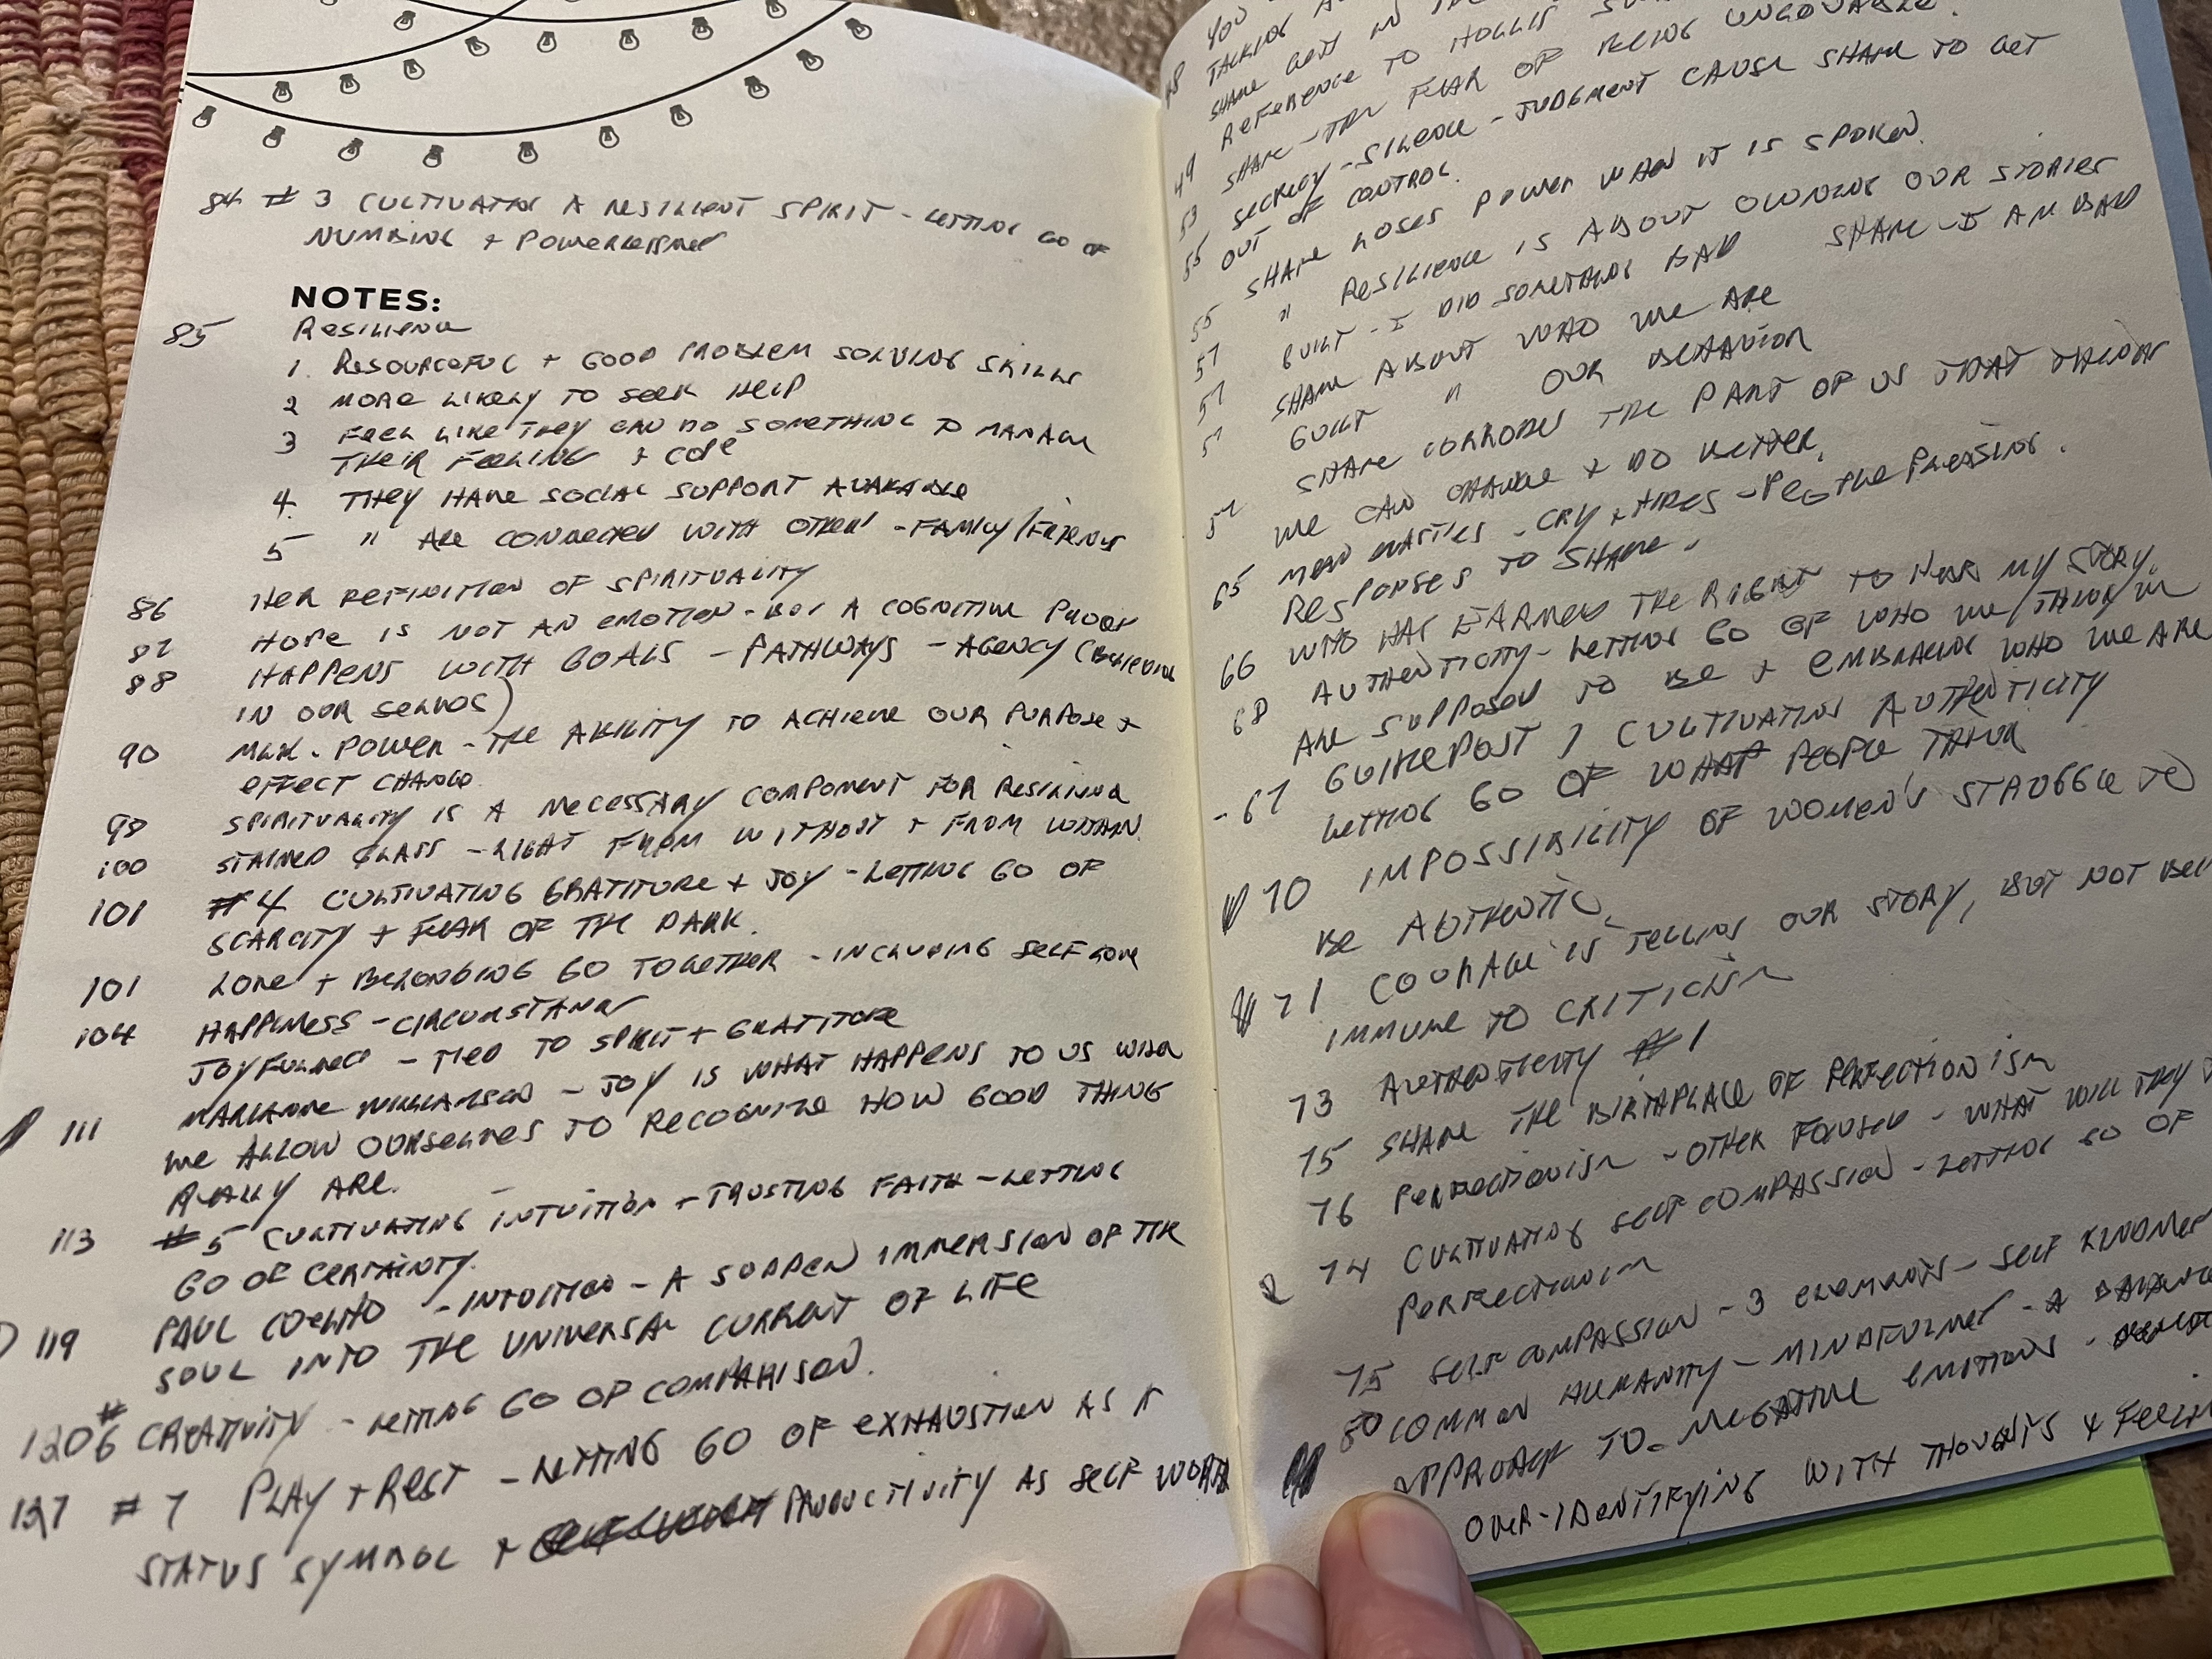 84 # 3 CULTIVATING A RESILIENT SPIRIT - LETTING GO OF
NUMBING + POWERLESSNESS
NOTES:
85 RESILIENCE
1. RESOURCEFUL + GOOD PROBLEM SOLVING SKILLS
2 MORE LIKELY TO SEEK HELP
3 FEEL LIKE THEY CAN DO SOMETHING TO MANAGE
THEIR FEELING + COPE
4. THEY HAVE SOCIAL SUPPORT AVAILABLE
5 " ARE CONNECTED WITH OTHER - FAMILY/FRIENDS
86 HER DEFINITION OF SPIRITUALITY
87 HOPE IS NOT AN EMOTION - BUT A COGNITIVE PROCESS
88 HAPPENS WITH GOALS - PATHWAYS - AGENCY (BELIEVING
IN OUR SELVES)
90 MLK. POWER - THE ABILITY TO ACHIEVE OUR PURPOSE +
EFFECT CHANGE
98 SPIRITUALITY IS A NECESSARY COMPONENT FOR RESILIENCE
100 STAINED GLASS - LIGHT FROM WITHOUT + FROM WITHIN
101 #4 CULTIVATING GRATITUDE + JOY - LETTING GO OF
SCARCITY + FEAR OF THE DARK.
101 LOVE + BELONGING GO TOGETHER - INCLUDING SELF LOVE
104 HAPPINESS - CIRCUMSTANCE
JOYFULNESS - TIED TO SPIRIT + GRATITUDE
111 MARIANNE WILLIAMSON - JOY IS WHAT HAPPENS TO US WHEN
WE ALLOW OURSELVES TO RECOGNIZE HOW GOOD THING
REALLY ARE.
113 #5 CULTIVATING INTUITION + TRUSTING FAITH - LETTING
GO OF CERTAINTY.
119 PAUL COELHO - INTUITION - A SUDDEN IMMERSION OF THE
SOUL INTO THE UNIVERSAL CURRENT OF LIFE
120 #6 CREATIVITY - LETTING GO OF COMPARISON.
127 # 7 PLAY + REST - LETTING GO OF EXHAUSTION AS A
STATUS SYMBOL + PRODUCTIVITY AS SELF WORTH
YOU
TALKING
SHAME GETS IN THE
REFERENCE TO HOLLIS
49 SHAME - THE FEAR OF BEING UNLOVABLE.
53 SECRECY - SILENCE - JUDGMENT CAUSE SHAME TO GET
OUT OF CONTROL.
55 SHAME LOSES POWER WHEN IT IS SPOKEN.
55 " RESILIENCE IS ABOUT OWNING OUR STORIES
57 GUILT - I DID SOMETHING BAD SHAME - I AM BAD
57 SHAME ABOUT WHO WE ARE
57 GUILT " OUR BEHAVIOR
57 SHAME CORRODES THE PART OF US THAT THINKS
WE CAN CHANGE + DO BETTER.
65 MEAN NASTIES - CRY + HIDES - PEG THE PLEASING.
RESPONSES TO SHAME.
66 WHO HAS EARNED THE RIGHT TO HEAR MY STORY.
68 AUTHENTICITY - LETTING GO OF WHO WE THINK WE
ARE SUPPOSED TO BE + EMBRACING WHO WE ARE
- 67 GUIDEPOST 1 CULTIVATING AUTHENTICITY
LETTING GO OF WHAT PEOPLE THINK
70 IMPOSSIBILITY OF WOMEN'S STRUGGLE TO
BE AUTHENTIC.
71 COURAGE IS TELLING OUR STORY, BUT NOT BEING
IMMUNE TO CRITICISM
73 AUTHENTICITY #1
75 SHAME THE BIRTHPLACE OF PERFECTIONISM
76 PERFECTIONISM - OTHER FOCUSED - WHAT WILL THEY
2 74 CULTIVATING SELF COMPASSION - LETTING GO OF
PERFECTIONISM
75 SELF COMPASSION - 3 ELEMENTS - SELF KINDNESS
80 COMMON HUMANITY - MINDFULNESS - A BALANCED
APPROACH TO NEGATIVE EMOTIONS -
OVER-IDENTIFYING WITH THOUGHTS + FEELIN